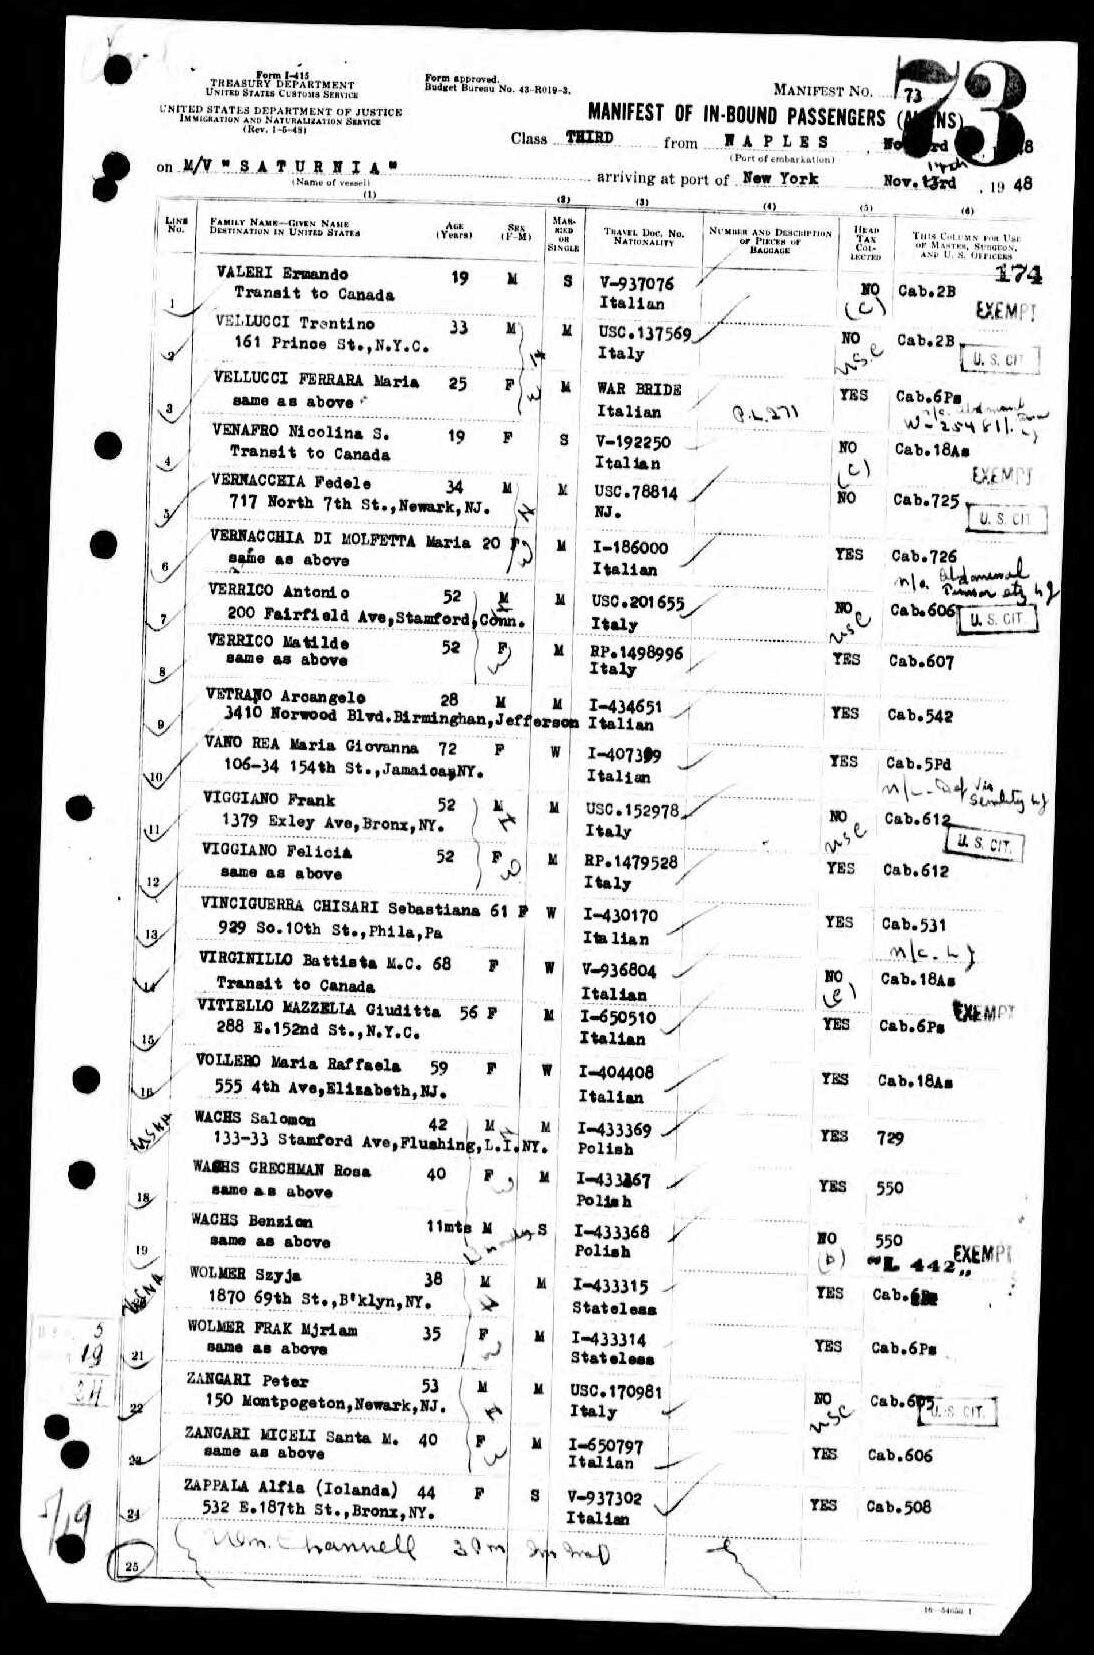 Form I-415
TREASURY DEPARTMENT
UNITED STATES CUSTOMS SERVICE
UNITED STATES DEPARTMENT OF JUSTICE
IMMIGRATION AND NATURALIZATION SERVICE
(Rev. 1-5-48)
Form approved.
Budget Bureau No. 43-R019-3.
MANIFEST NO. 73
73
MANIFEST OF IN-BOUND PASSENGERS (ALIENS)
Class THIRD from NAPLES
(Port of embarkation)
on M/V "SATURNIA" arriving at port of New York Nov. 3rd, 1948
(Name of vessel)
(1) (2) (3) (4) (5) (6)
LINE No. FAMILY NAME—GIVEN NAME DESTINATION IN UNITED STATES AGE (Years) SEX (F-M) MARRIED OR SINGLE TRAVEL DOC. NO. NATIONALITY NUMBER AND DESCRIPTION OF PIECES OF BAGGAGE HEAD TAX COLLECTED THIS COLUMN FOR USE OF MASTER, SURGEON, AND U. S. OFFICERS
174
1 VALERI Ermando 19 M S V-937076 NO Cab.2B
Transit to Canada Italian (C) EXEMPT
2 VELLUCCI Trentino 33 M M USC.137569 NO Cab.2B
161 Prince St.,N.Y.C. Italy USC U. S. CIT.
3 VELLUCCI FERRARA Maria 25 F M WAR BRIDE YES Cab.6Ps
same as above Italian P.L.271
4 VENAFRO Nicolina S. 19 F S V-192250 NO Cab.18As
Transit to Canada Italian (C) EXEMPT
5 VERNACCHIA Fedele 34 M M USC.78814 NO Cab.725
717 North 7th St.,Newark,NJ. NJ. U. S. CIT
6 VERNACCHIA DI MOLFETTA Maria 20 F M I-186000 YES Cab.726
same as above Italian
7 VERRICO Antonio 52 M M USC.201655 NO Cab.606
200 Fairfield Ave,Stamford,Conn. Italy USC U. S. CIT.
8 VERRICO Matilde 52 F M RP.1498996 YES Cab.607
same as above Italy
9 VETRANO Arcangelo 28 M M I-434651 YES Cab.542
3410 Norwood Blvd.Birminghan,Jefferson Italian
10 VANO REA Maria Giovanna 72 F W I-407399 YES Cab.5Pd
106-34 154th St.,Jamaica,NY. Italian
11 VIGGIANO Frank 52 M M USC.152978 NO Cab.612
1379 Exley Ave,Bronx,NY. Italy USC U. S. CIT.
12 VIGGIANO Felicia 52 F M RP.1479528 YES Cab.612
same as above Italy
13 VINCIGUERRA CHISARI Sebastiana 61 F W I-430170 YES Cab.531
929 So.10th St.,Phila,Pa Italian
14 VIRGINILLO Battista M.C. 68 F W V-936804 NO Cab.18As
Transit to Canada Italian (C) EXEMPT
15 VITIELLO MAZZELLA Giuditta 56 F M I-650510 YES Cab.6Ps
288 E.152nd St.,N.Y.C. Italian
16 VOLLERO Maria Raffaela 59 F W I-404408 YES Cab.18As
555 4th Ave,Elizabeth,NJ. Italian
WACHS Salomon 42 M M I-433369 YES 729
133-33 Stamford Ave,Flushing,L.I.NY. Polish
18 WACHS GRECHMAN Rosa 40 F M I-433367 YES 550
same as above Polish
19 WACHS Benzion 11mts M S I-433368 NO 550
same as above Polish (b) "L 442" EXEMPT
WOLMER Szyja 38 M M I-433315 YES Cab.
1870 69th St.,B'klyn,NY. Stateless
21 WOLMER FRAK Mjriam 35 F M I-433314 YES Cab.6Ps
same as above Stateless
22 ZANGARI Peter 53 M M USC.170981 NO Cab.605
150 Montpogeton,Newark,NJ. Italy USC U. S. CIT.
23 ZANGARI MICELI Santa M. 40 F M I-650797 YES Cab.606
same as above Italian
24 ZAPPALA Alfia (Iolanda) 44 F S V-937302 YES Cab.508
532 E.187th St.,Bronx,NY. Italian
25 Wm. Channell
5
19
24
5/19